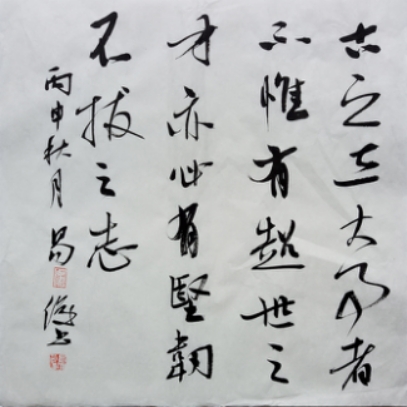 古之立大事者
不惟有超世之
才亦必有堅韌
不拔之志
丙申秋月易